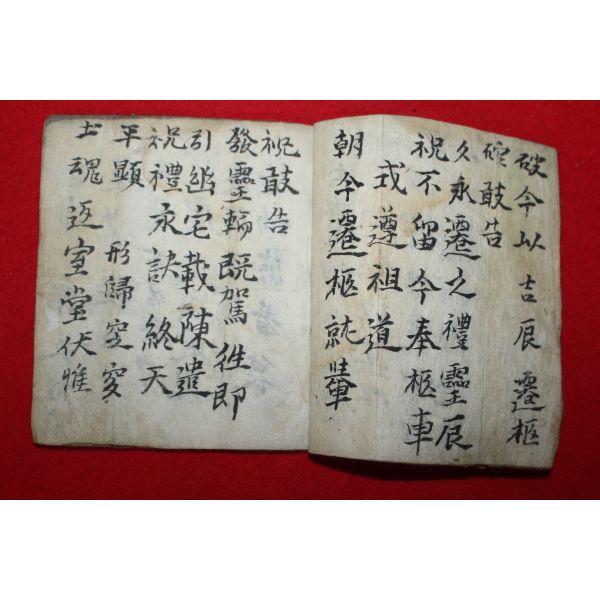 破今以吉辰遷柩
敢告
久永遷之禮靈辰
祝不留今奉柩車
式遵祖道
朝今遷柩就
祝敢告
發靈輪既駕徃即
引幽宅載陳遣
祝禮永訣終天
平顯 形歸
土魂返室堂伏惟